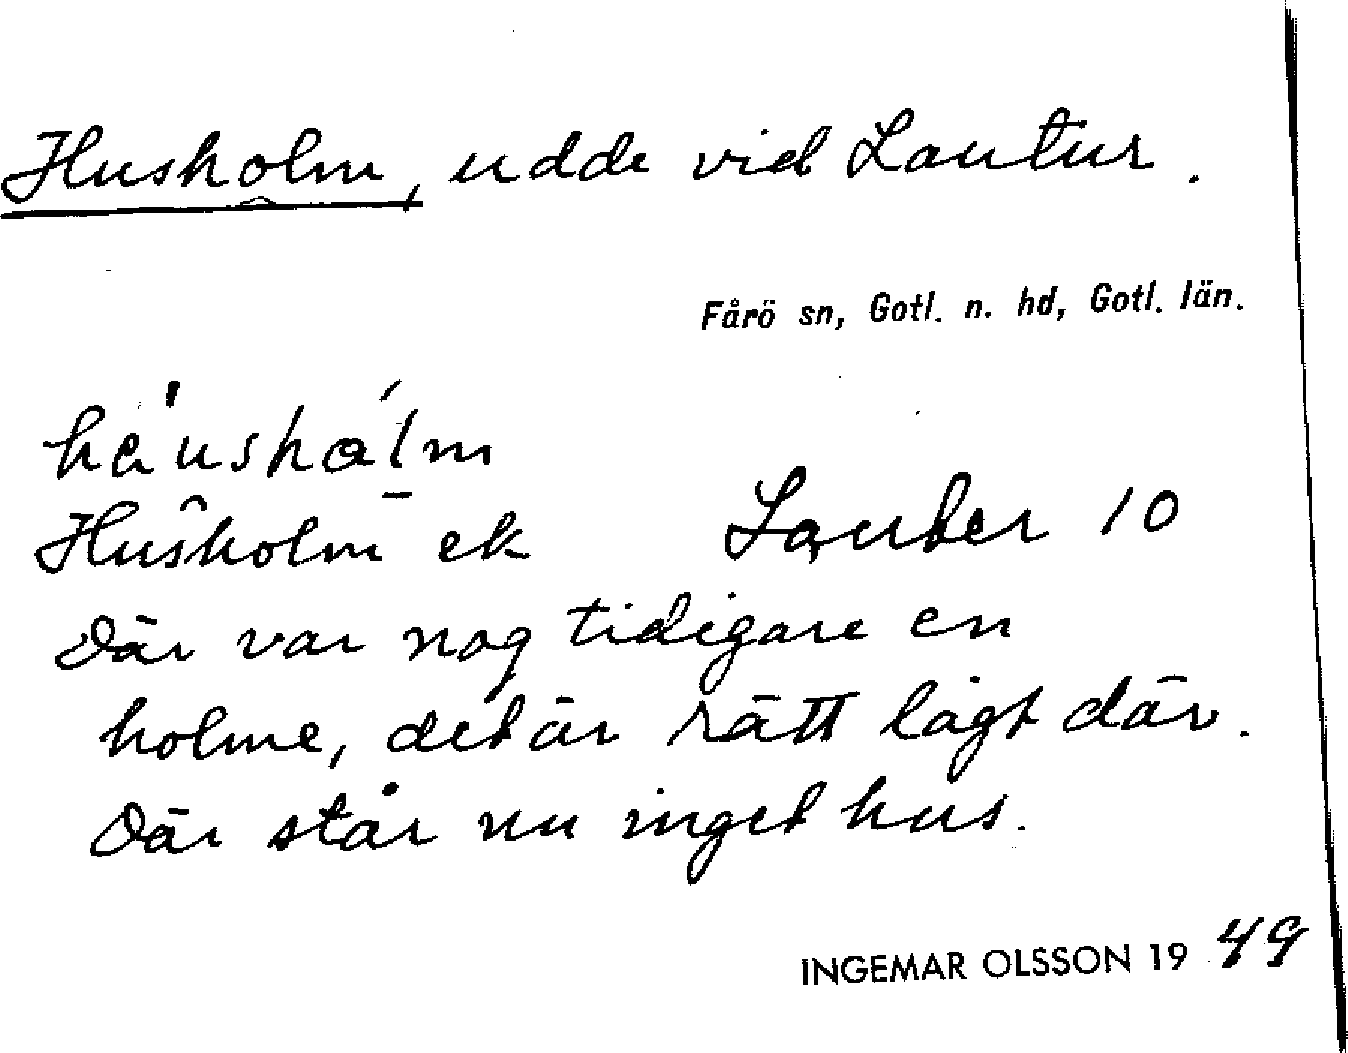 Husholm, udde vid Lautur.
Fårö sn, Gotl. n. hd, Gotl. län.
häusholm
Husholm ek Lauter 10
Där var nog tidigare en
holme, det är rätt lågt där.
Där står nu inget hus.
INGEMAR OLSSON 1949